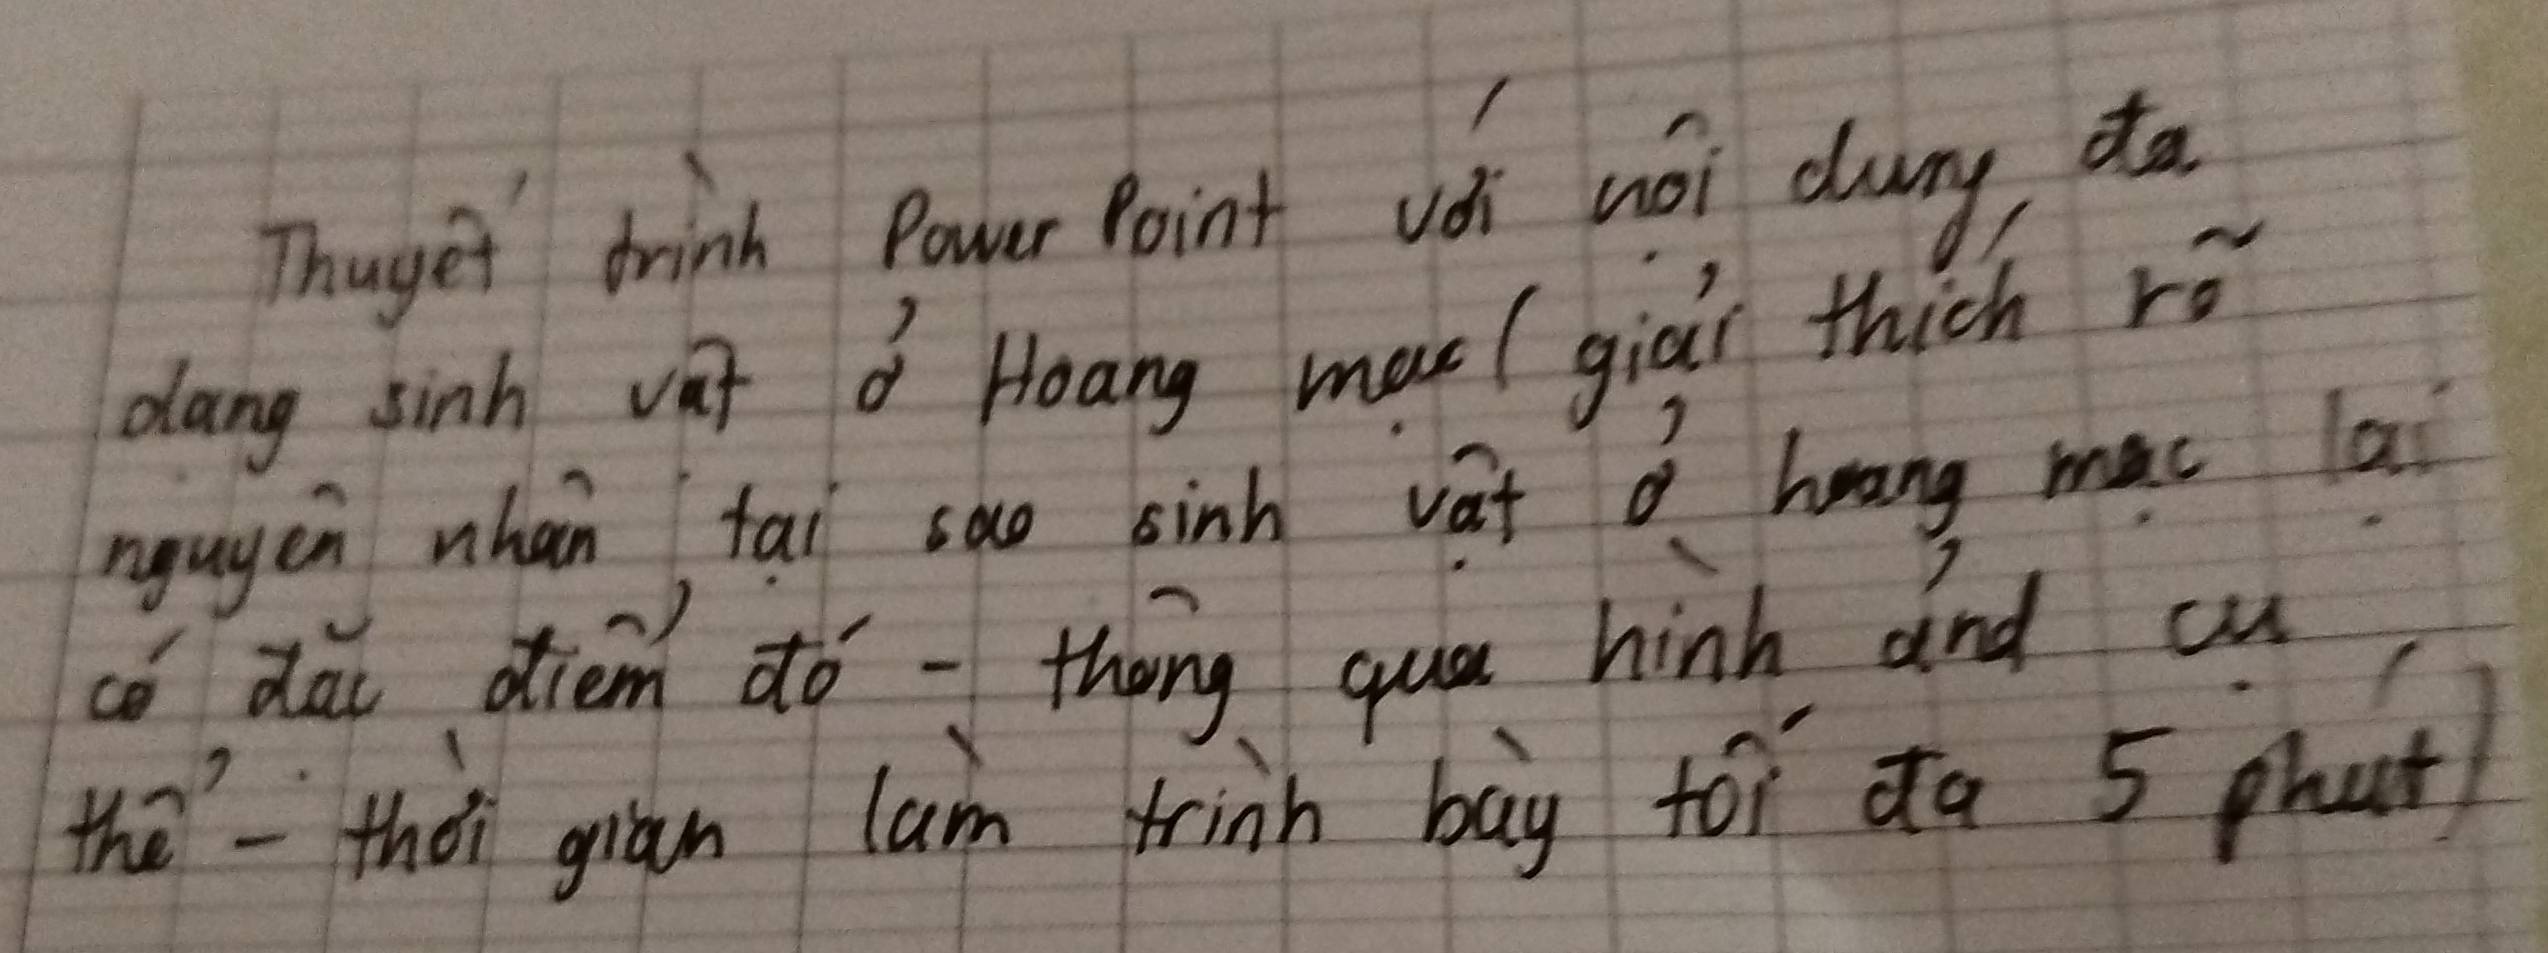 Thuyết trình PowerPoint với nội dung, đa
dạng sinh vật ở Hoang mạc (giải thích rõ
nguyên nhân tại sao sinh vật ở hoang mạc lại
có đặc điểm đó - thông qua hình ảnd cụ
thể - thời gian làm trình bày tối đa 5 phút)